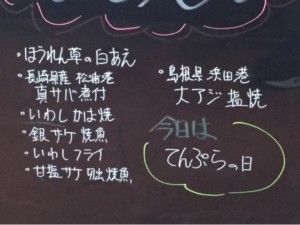 ・ほうれん草の白あえ
・長崎県産 松浦港
真サバ煮付
・いわし かば焼
・銀サケ 焼魚
・いわしフライ
・甘塩サケ 切出焼魚
・島根県 浜田港
大アジ塩焼
今日は
てんぷらの日